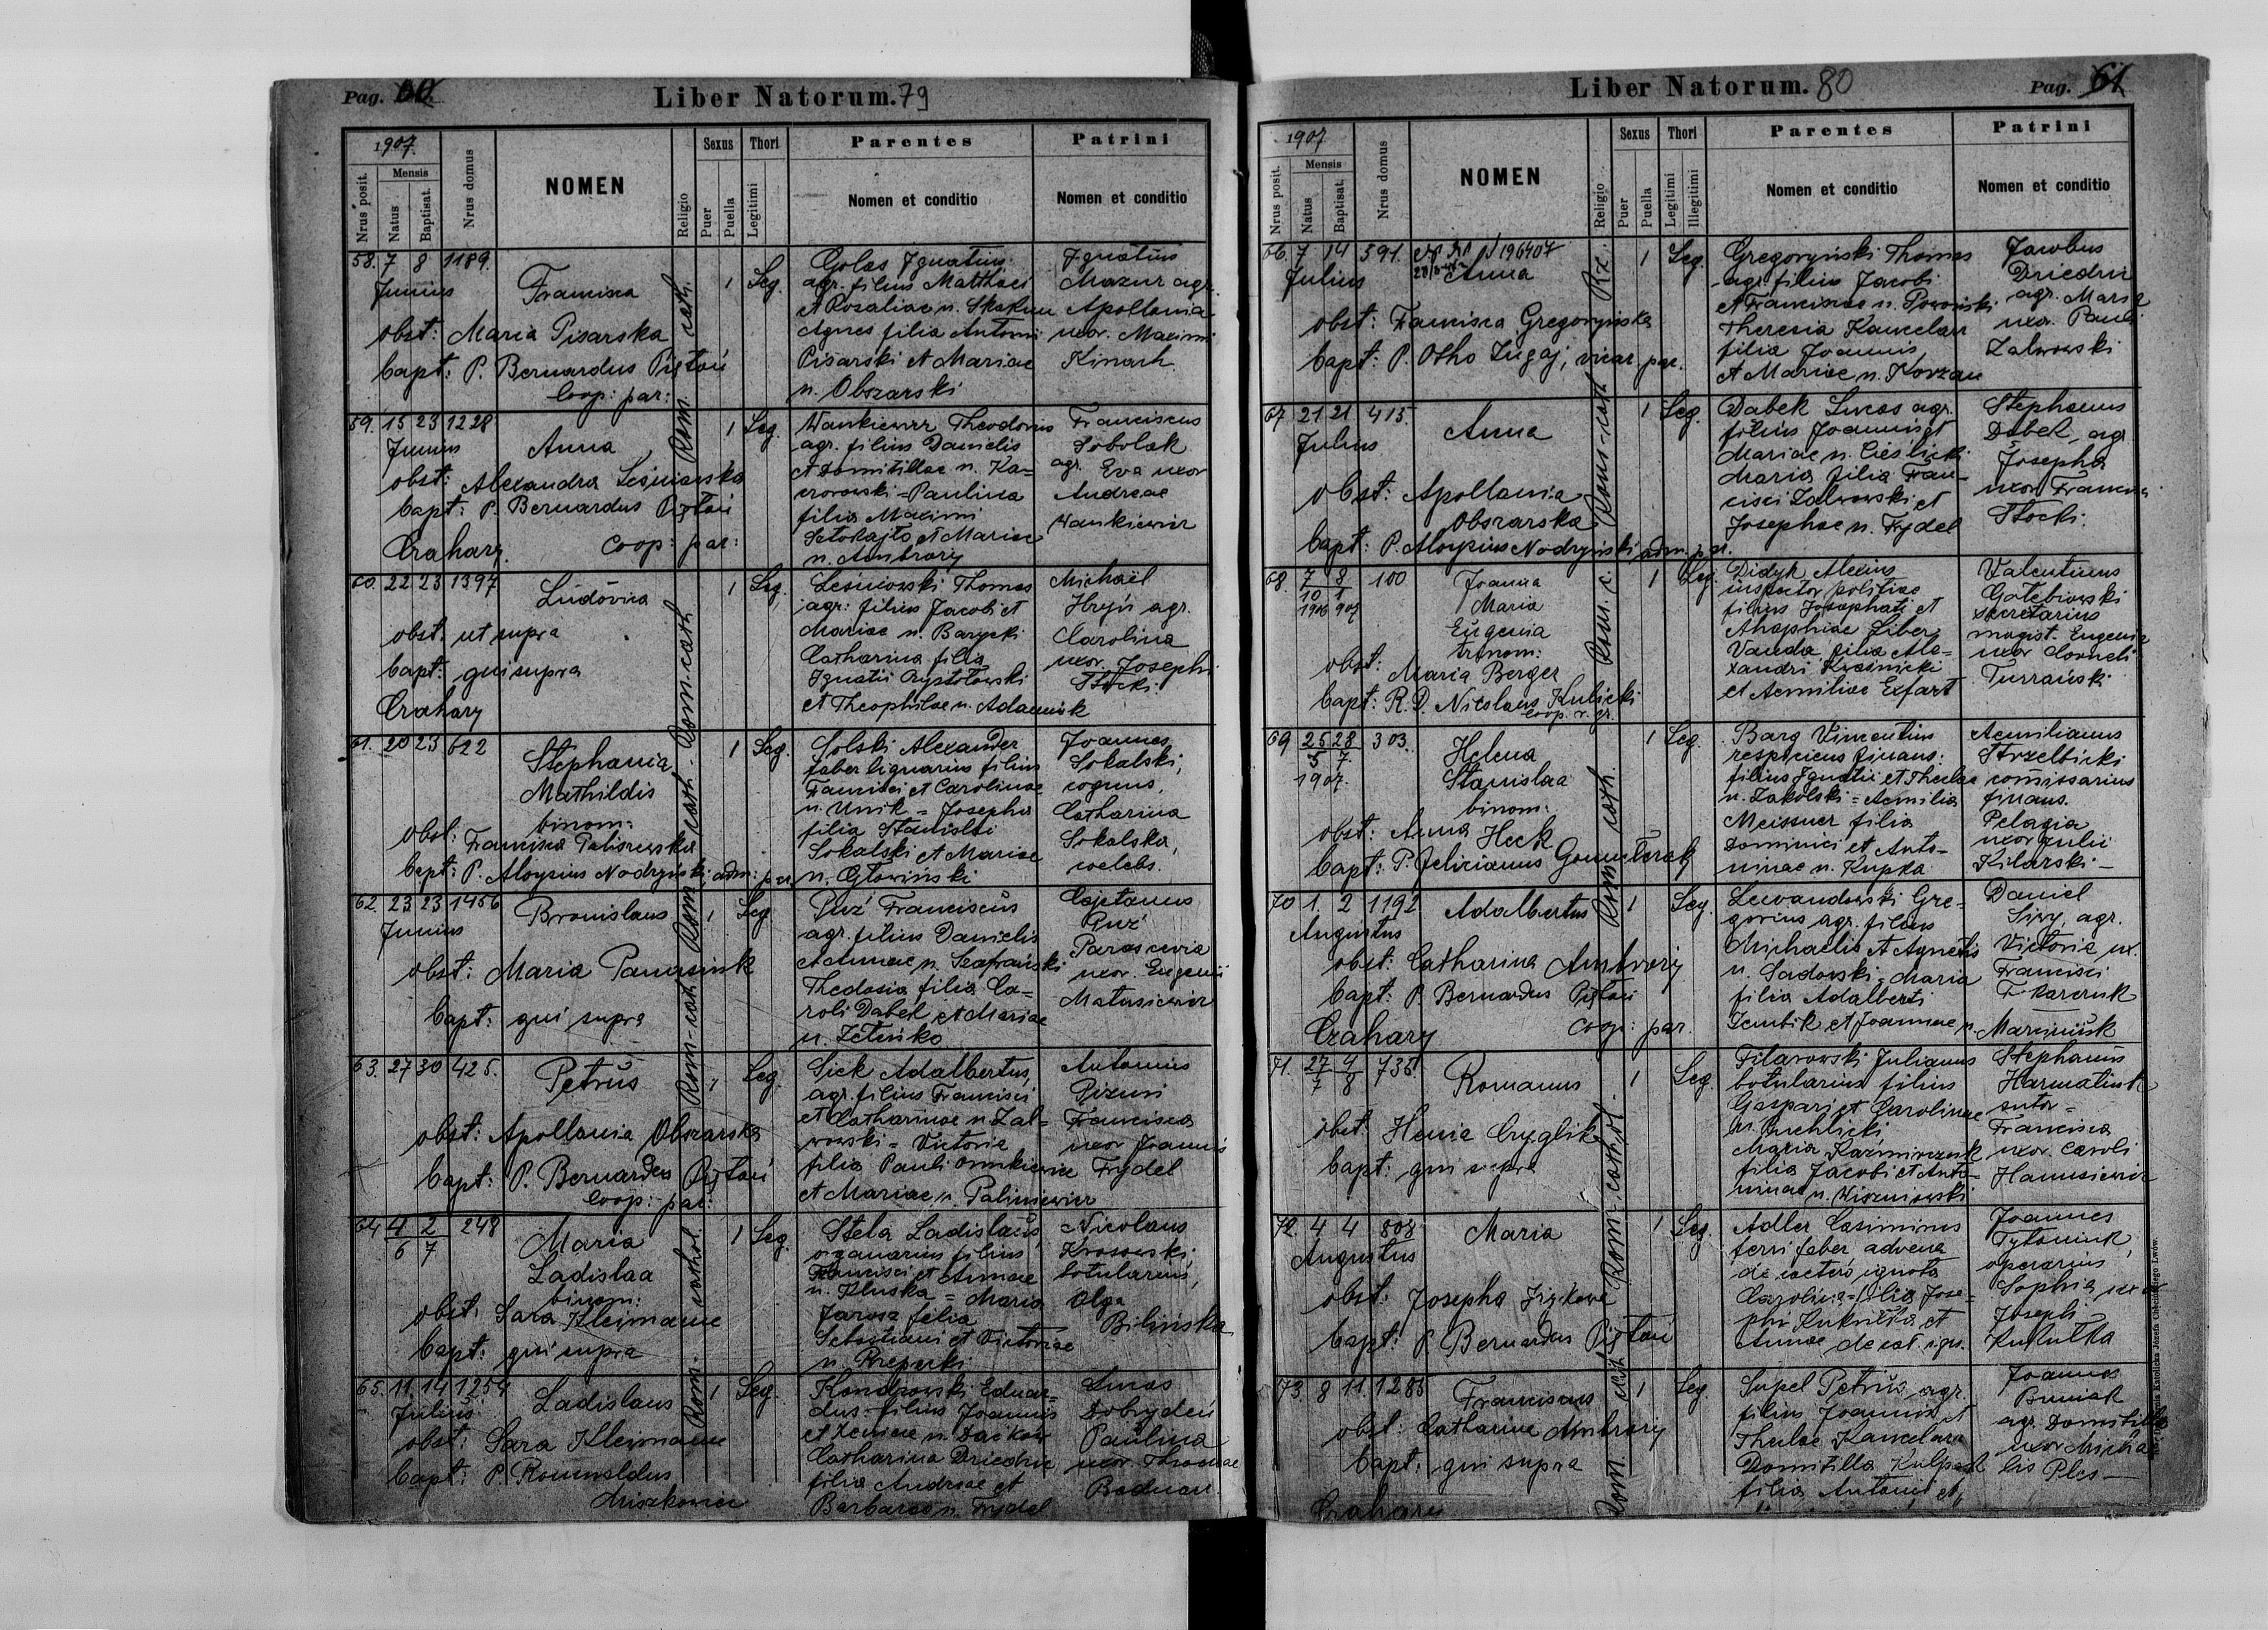 Pag. 60
Liber Natorum. 79
1907.
Nrus posit.
Mensis
Natus
Baptisat.
Nrus domus
NOMEN
Religio
Sexus
Puer
Puella
Thori
Legitimi
Parentes
Nomen et conditio
Patrini
Nomen et conditio
58. 7 8 1189.
Junius
Francisca
1 Leg.
obst: Maria Pisarska
bapt: P. Bernardus
Coop: par:
Rom. cath.
Golas Ignatius
agr. filius Matthaei
et Rosaliae n. Skakun
Agnes filia Antonii
Pisarski et Mariae
n. Obszarski
Ignatius
Mazur agr.
Apollonia
uxor. Maximi
Kinach
59. 15 23 1228
Junius
Anna
1 Leg.
obst: Alexandra Leśniowska
bapt: P. Bernardus
Crahary. coop: par:
Wankiewicz Theodorus
agr. filius Danielis
et Domitillae n. Ka=
= Paulina
filia Maximi
et Mariae
n. Ambrozy
Franciscus
Sobolak
agr. Eva uxor
Andreae
Wankiewicz
60. 22 23 1397
Ludovica
1 Leg.
obst. ut supra
bapt: qui supra
Crahary
Rom-cath
Leśniowski Thomas
agr: filius Jacobi et
Mariae n. Barycki
Catharina filia
Ignatii
et Theophilae n. Adamiuk
Michaël
Hryń agr.
Carolina
uxor. Josephi
Stocki.
61. 20 23 622
Stephania
Mathildis
binom:
1 Leg.
obst: Francisca Paliszewska
bapt: P. Aloysius Nodzyński, adm: par.
Rom cath
Golski Alexander
faber lignarius filius
Francisci et Carolinae
n. Unik = Josepha
filia Stanislai
Sokalski et Mariae
n. Głowiński
Joannes
Sokalski,
coquus,
Catharina
Sokalska,
coelebs.
62. 23 23 1456
Junius
Bronislaus
1 Leg
obst: Maria Panasiuk
bapt: qui supra
Rom-cath
Puź Franciscus
agr. filius Danielis
et Annae n. Szafrański
Thedosia filia Ca=
roli Dabek et Mariae
n. Zeleńko
Cajetanus
Puź
Parascevia
uxor. Eugenii
Matusiewicz
63. 27 30 425.
Petrus
1 Leg.
obst: Apollonia Obszarska
bapt: P. Bernardus
Coop: par:
Sick Adalbertus
agr. filius Francisci
et Catharinae n. Zal=
wowski = Victoria
filia Pauli
et Mariae n. Paliniewicz
Antonius
Francisca
uxor Joannis
Frydel
64. 4/6 2/7 248
Maria
Ladislaa
binom:
1 Leg.
obst. Sara Klejmann
bapt: qui supra
Rom. cathol
Stela Ladislaus
organarius filius
Francisci et Annae
n. Kluska = Maria
Jarosz filia
Sebastiani et Victoriae
n. Rzeperki
Nicolaus
Krasowski
botularius,
Olga
Bilińska
65. 11. 14 1254
Julius
Ladislaus
1 Leg.
obst: Sara Klejmann
bapt: P. Romualdus
Miszkowicz
Kondrowski Eduar=
dus filius Joannis
et Xeniae n. Dackow
Catharina Driedric
filia Andreae et
Barbarae n. Frydel
Lucas
Dobrydeń
Paulina
uxor. Thomae
Bodnar.
Liber Natorum. 80
Pag. 61
1907
Nrus posit.
Mensis
Natus
Baptisat.
Nrus domus
NOMEN
Religio
Sexus
Puer
Puella
Thori
Legitimi
Illegitimi
Parentes
Nomen et conditio
Patrini
Nomen et conditio
66. 7 14 591.
Julius
Anna
1 Leg.
obst: Francisca Gregoryńska
bapt: P. Otho Zugaj, vicar. par.
Gregoryński Thomas
agr. filius Jacobi
et Franciscae n.
Theresia Kancelarz
filia Joannis,
et Mariae n. Korzan
Jacobus
Driedric
agr. Maria
uxor. Pauli
Zalwowski
67 21 21 413.
Julius
Anna
1 Leg.
obst: Apollonia
Obszarska
bapt: P. Aloysius Nodzyński adm. par.
Rom-cath
Dabek Lucas agr.
filius Joannis et
Mariae n. Cieślicki
Maria filia Fran=
cisci Zalwowski et
Josephae n. Frydel
Stephanus
Dabek, agr
Josepha
uxor Francisci
Stocki.
68. 7/10 1906 8/1 907 100
Joanna
Maria
Eugenia
trinom:
1 Leg.
obst: Maria Berger
bapt: R. D. Nicolaus Kulicki
coop. r. gr.
Rom. c.
Didyk Alexius
inspector politiae
filius Josaphati et
Liber
Vanda filia Ale=
xandri Kraśnicki
et Aemiliae Exfart
Valentinus
Gołębiowski
secretarius
magist. Eugenia
uxor Corneli
Turzański
69 25/5 28/7 303.
1907.
Helena
Stanislaa
binom:
1 Leg.
obst: Anna Heck
bapt: P. Felicianus
Rom cath.
Barg Vincentius
respiciens finans:
filius Ignatii et Theclae
n. Zakolski = Aemilia
Meissner filia
Dominici et Anto=
ninae n. Kupka
Aemilianus
Strzelbicki
comissarius
finans.
Pelagia
uxor Julii
Kilarski —
70 1. 2 1192
Augustus
Adalbertus
1 Leg.
obst: Catharina Ambrozy
bapt: P. Bernardus
Crahary coop: par.
Lewandowski Gre=
gorius agr. filius
Michaelis et Agnetis
n. Sadowski = Maria
filia Adalberti
Zembik et Joannae n. Marciniuk
Daniel
Siwy, agr.
Victoria ux.
Francisci
Tkarczuk
71. 27/7 4/8 735.
Romanus
1 Leg.
obst. Henia Cyglik
bapt: qui supra
Rom. cathol.
Filarowski Julianus
botularius filius
Gaspari et Carolinae
n. Puchlicki
Maria Kaźmirczuk
filia Jacobi et Anto=
ninae n. Wiszniowski
Stephanus
Harmatiuk
sutor =
Francisca
uxor. Caroli
Hanusiewicz
72. 4 4 808
Augustus
Maria
1 Leg.
obst: Josepha
bapt: P. Bernardus
Rom
Adler Casimirus
ferri faber advena
de caetero ignota
Carolina = filia Jose=
phi Kukułka et
Annae de cat. ign.
Joannes
Tytoniuk,
operarius
Sophia uxor
Josephi
Kukułka
73. 8 11. 1286
Franciscus
1 Leg.
obst: Catharina Ambrozy
bapt: qui supra
Crahary
Rom cath
Supel Petrus agr.
filius Joannis et
Theclae Kancelarz
Domitilla Kulpak
filia Antonii et
Joannes
Buniak
agr. Domitilla
uxor Michae
lis Ples —